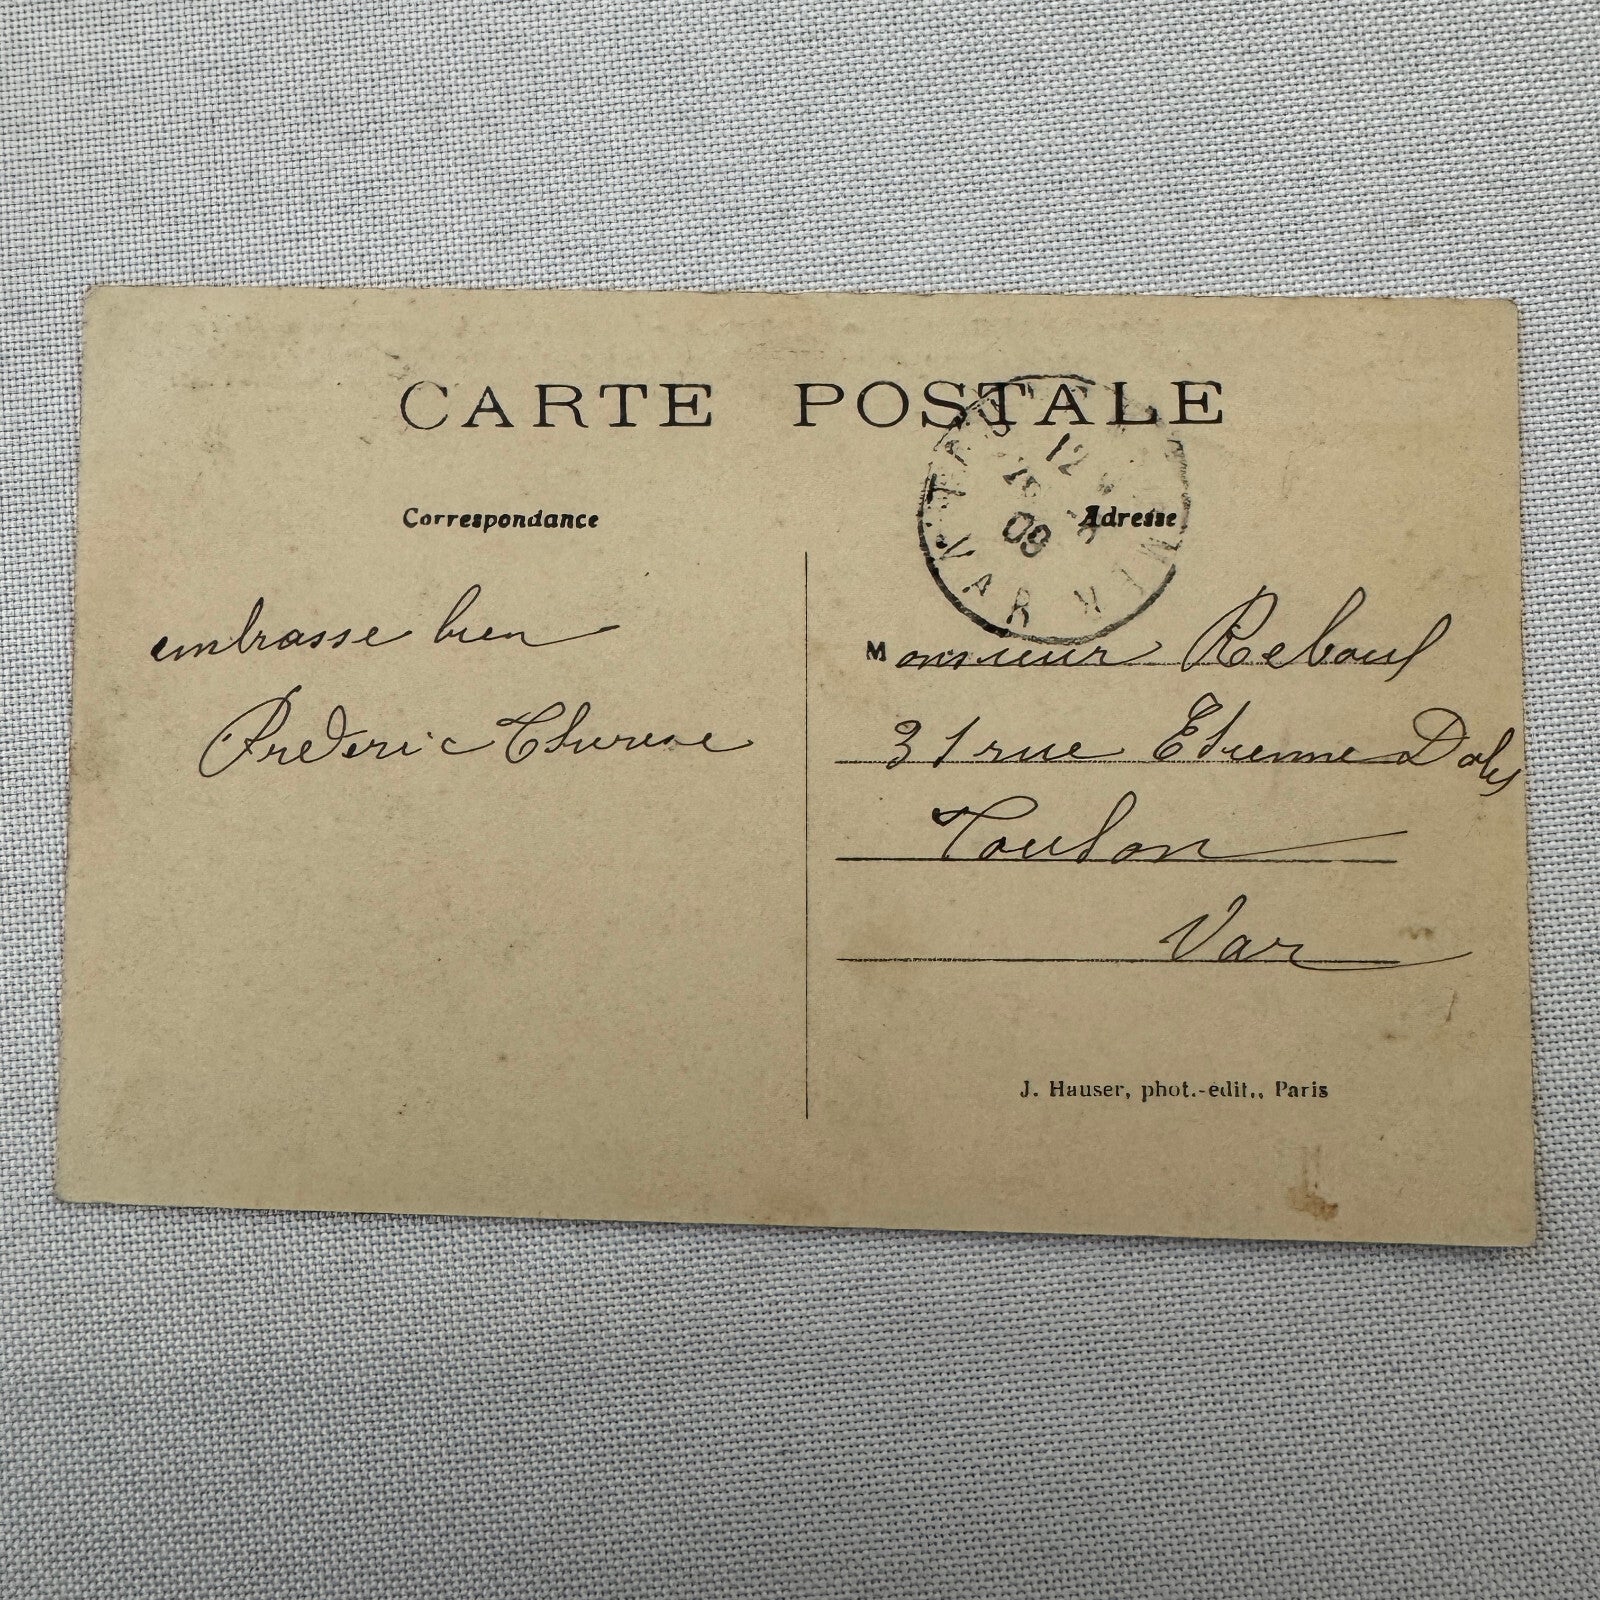 CARTE POSTALE
Correspondance
Adresse
12
08
VAR
embrasse bien
Frederic Therese
Monsieur Reboul
31 rue Etienne Dales
Toulon
Var
J. Hauser, phot.-édit., Paris